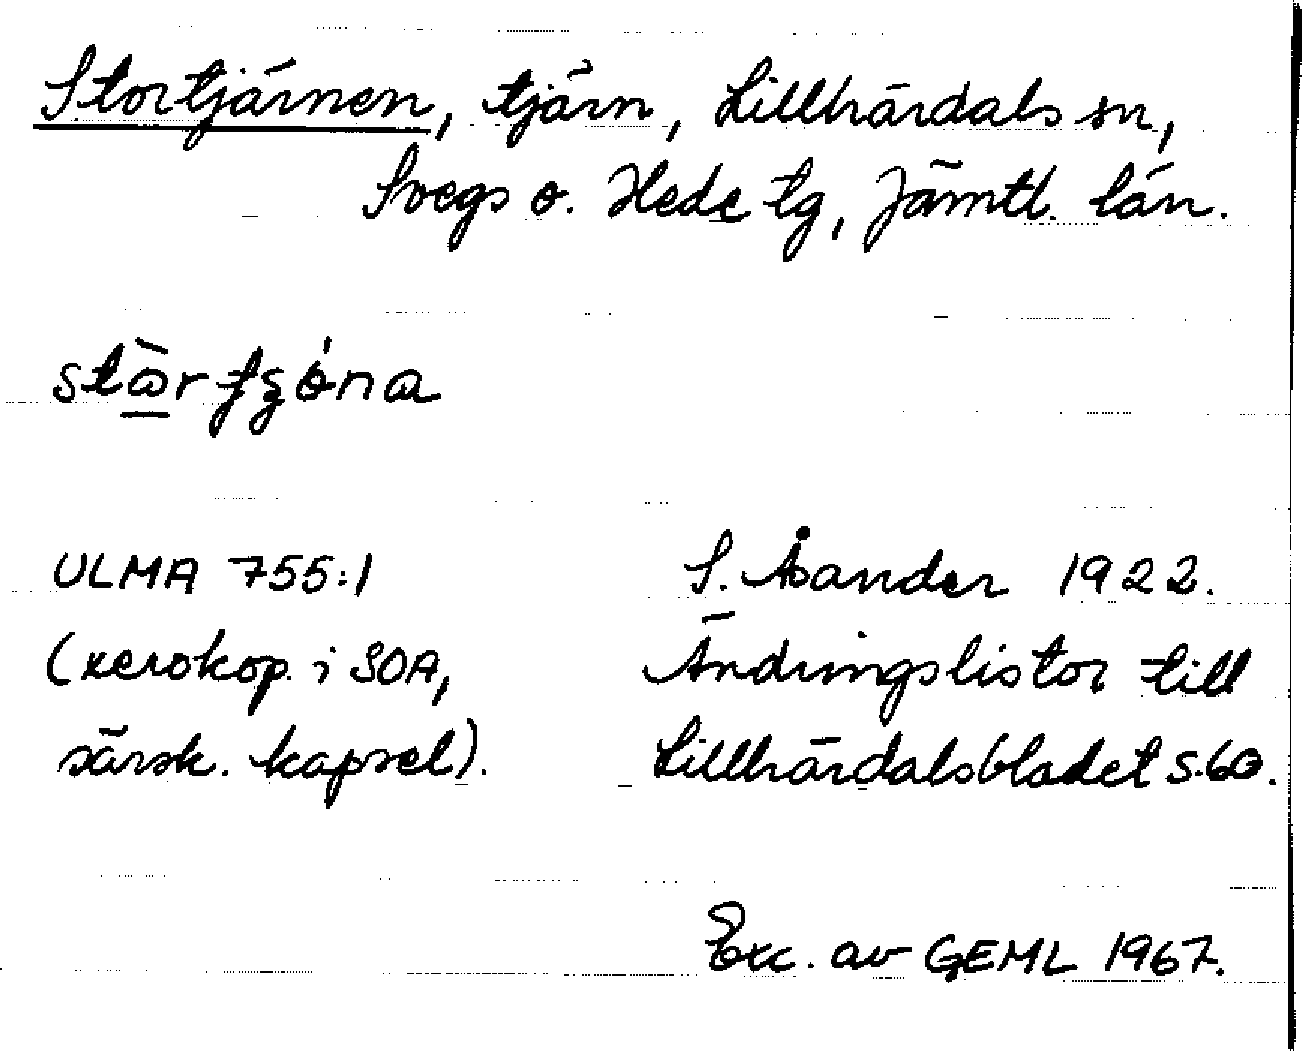 Stortjärnen, tjärn, Lillhärdals sn,
Svegs o. Hede tg, Jämtl. län.
ULMA 755:1
(xerokop. i SOA,
särsk. kapsel).
S. Åsander 1922.
Ändringslistor till
Lillhärdalsbladet s.60.
Exc. av GEML 1967.